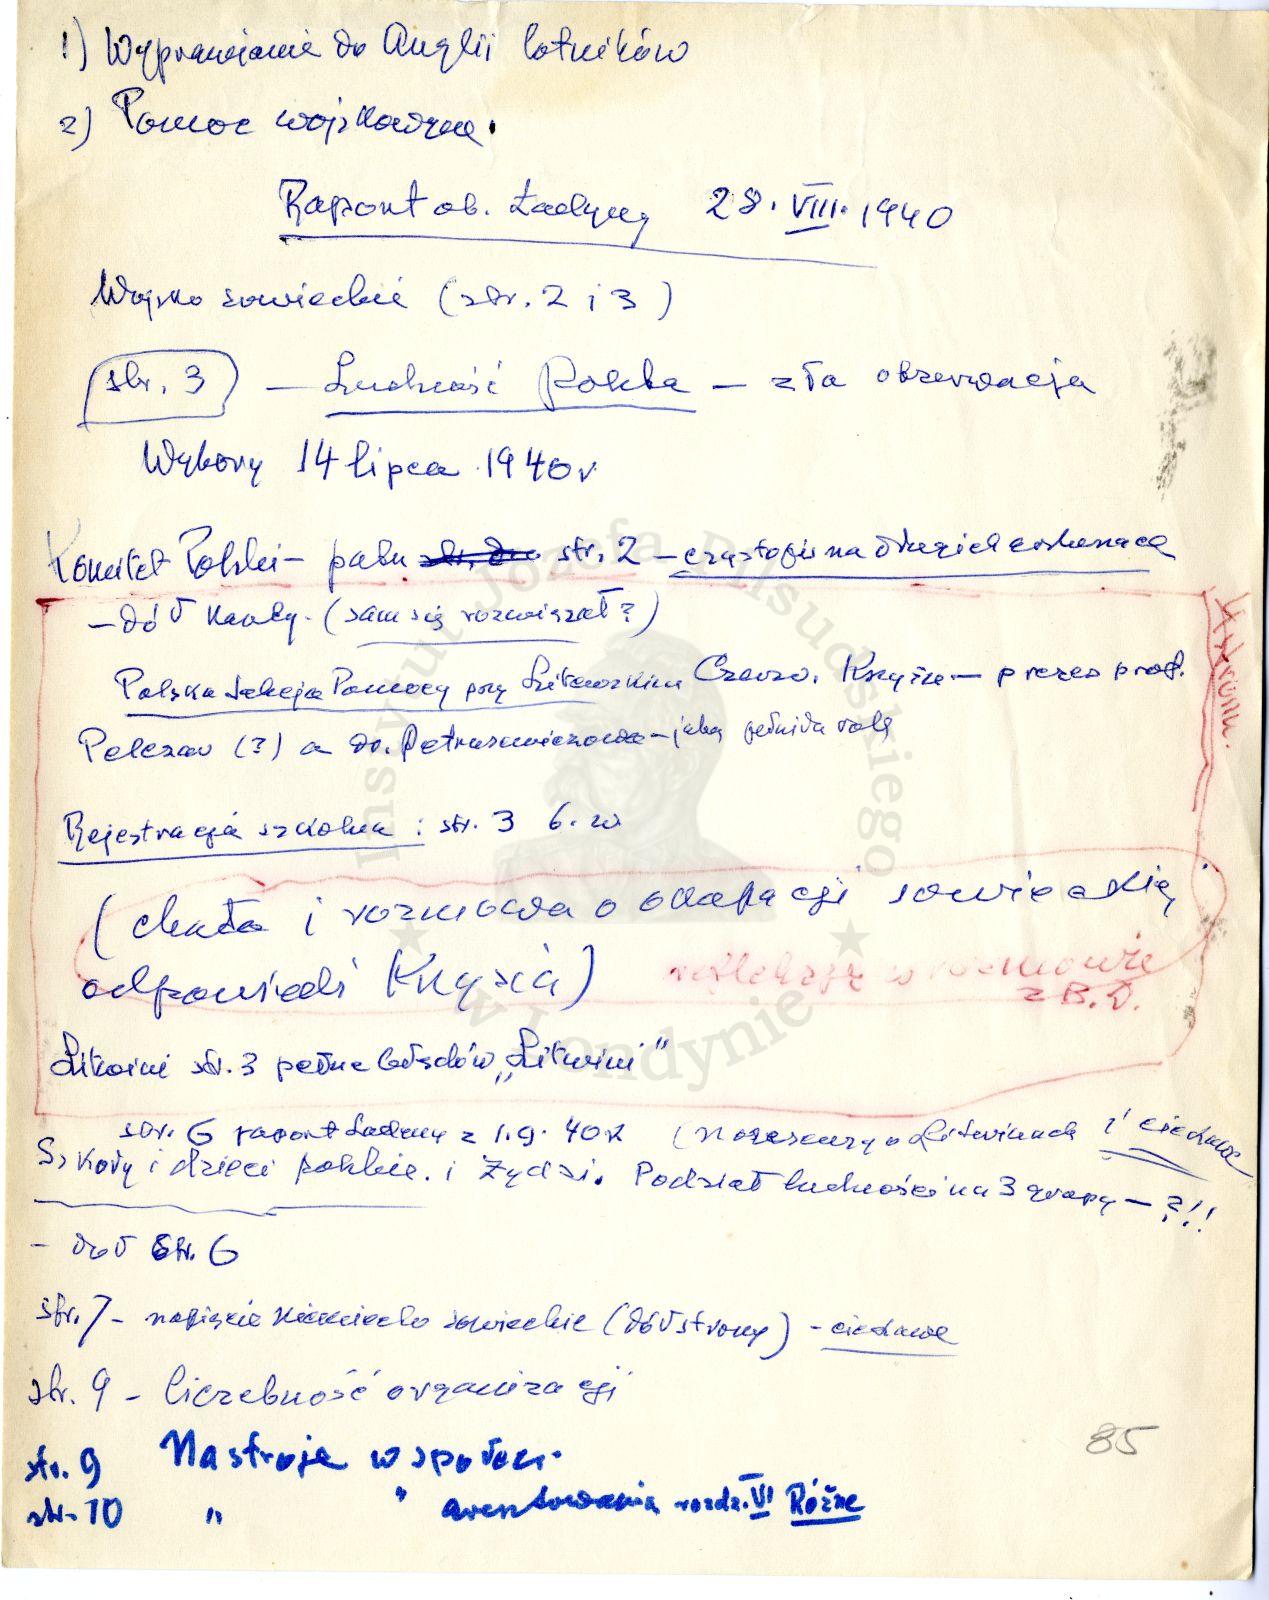 1) Wyprawianie do Anglii lotników
2) Pomoc wojskowym.
Raport ob. Ładyny 28. VIII. 1940
Wojsko sowieckie (str. 2 i 3)
str. 3 — Ludność Polska — zła obserwacja
Wybory 14 lipca 1940 r
Komitet Polski — str. 2 —
— dół (sam się rozwiązał?)
Polska Sekcja Pomocy przy Litewskim Czerw. Krzyżu — prezes prof.
Pelczar (?) a dr. Petrusewiczowa — jaką pełniła rolę
4 strona
Rejestracja szkolna : str. 3 b. w
( i rozmowa o okupacji sowieckiej
odpowiedzi Knyzia)
refleksje w rozmowie
z B. D.
Litwini str. 3 pełne błędów „Litwini”
str. 6 raport Ładyny z 1.9.40 r (o Litwinach i ciekawe
Szkoły i dzieci polskie. i Żydzi. Podział ludności na 3 grupy — ?!!
- dół str. 6
str. 7 - napięcie niemiecko sowieckie (dół strony) - ciekawe
str. 9 - liczebność organizacji
str. 9 Nastroje w społecz.
str. 10 " " aresztowania rozdz. VI Różne
85
Instytut Józefa Piłsudskiego
w Londynie